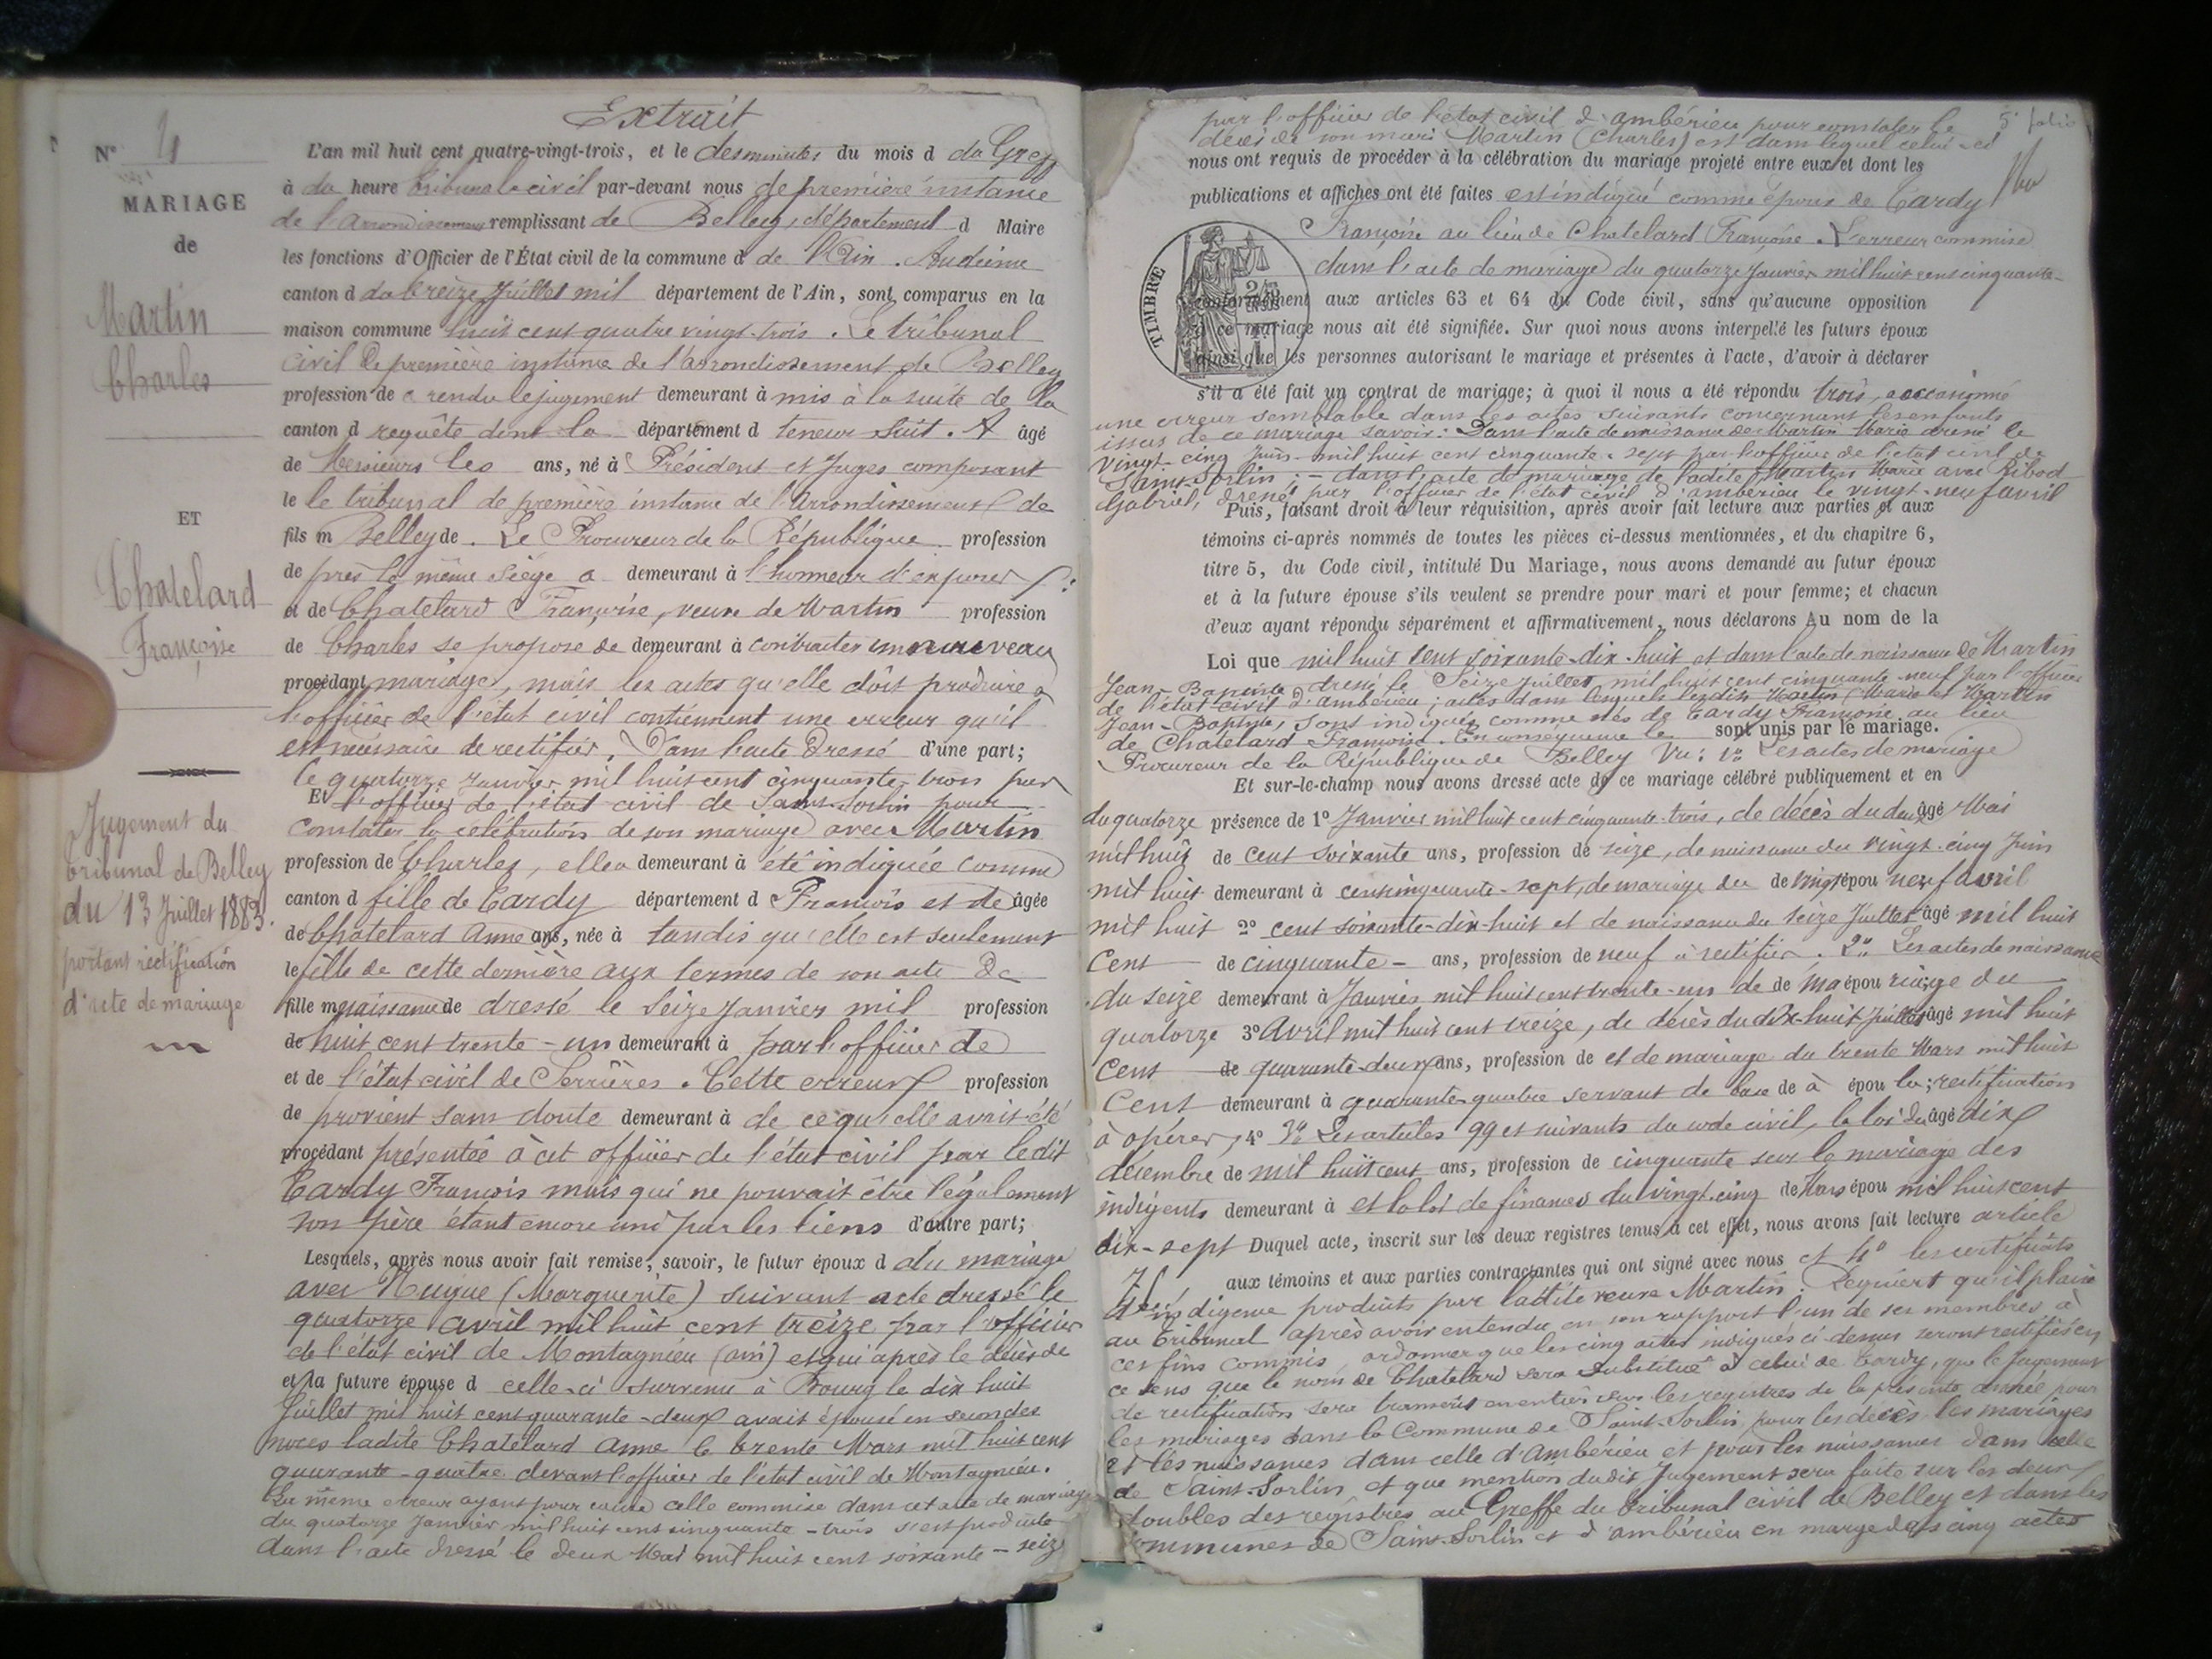 Extrait
N° 4
MARIAGE
de
Martin
Charles
ET
Chatelard
Françoise
Jugement du
tribunal de Belley
du 13 Juillet 1883.
portant rectification
d'acte de mariage
L'an mil huit cent quatre-vingt-trois, et le des minutes du mois d du Greff
à du heure tribunal civil par-devant nous de première instance
de l'arrondissement remplissant de Belley, département d Maire
les fonctions d'Officier de l'État civil de la commune d de l'Ain. Audience
canton d du treize Juillet mil département de l'Ain, sont comparus en la
maison commune huit cent quatre vingt-trois. Le tribunal
civil de première instance de l'arrondissement de Belley
profession de a rendu le jugement demeurant à mis à la suite de la
canton d requête dont la département d teneur suit. A âgé
de Messieurs les ans, né à Président et Juges composant
le le tribunal de première instance de l'Arrondissement de
fils m Belley de. Le Procureur de la République profession
de près le même siège a demeurant à l'honneur d'exposer
et de Chatelard Françoise, veuve de Martin profession
de Charles se propose de demeurant à contracter un nouveau
procédant mariage, mais les actes qu'elle doit produire à
l'officier de l'état civil contiennent une erreur qu'il
est nécessaire de rectifier. Dans l'acte dressé d'une part;
le quatorze Janvier mil huit cent cinquante-trois par
Et l'officier de l'état civil de Saint-Sorlin pour
constater la célébration de son mariage avec Martin
profession de Charles, elle a demeurant à été indiquée comme
canton d fille de Tardy département d François et de âgée
de Chatelard Anne ans, née à tandis qu'elle est seulement
le fille de cette dernière aux termes de son acte de
fille m naissance de dressé le seize Janvier mil profession
de huit cent trente-un demeurant à par l'officier de
et de l'état civil de Serrières. Cette erreur profession
de provient sans doute demeurant à de ce qu'elle avait été
procédant présentée à cet officier de l'état civil par ledit
Tardy François mais qui ne pouvait être légalement
son père étant encore uni par les liens d'autre part;
Lesquels, après nous avoir fait remise, savoir, le futur époux d du mariage
avec Nugue (Marguerite) suivant acte dressé le
quatorze avril mil huit cent treize par l'officier
de l'état civil de Montagnieu (ain) et qui après le décès de
et la future épouse d celle-ci survenu à Bourg le dix huit
Juillet mil huit cent quarante-deux avait épousé en secondes
noces ladite Chatelard Anne le trente Mars mil huit cent
quarante-quatre devant l'officier de l'état civil de Montagnieu.
La même erreur ayant pour cause celle commise dans cet acte de mariage
du quatorze Janvier mil huit cent cinquante-trois s'est produite
dans l'acte dressé le deux Mai mil huit cent soixante-seize
5e folio
par l'officier de l'état civil d'ambérieu pour constater le
décès de son mari Martin (Charles) est dans lequel celui-ci
nous ont requis de procéder à la célébration du mariage projeté entre eux et dont les
publications et affiches ont été faites est indiqué comme époux de Tardy
Françoise au lieu de Chatelard Françoise. L'erreur commise
dans l'acte de mariage du quatorze Janvier mil huit cent cinquante-
TIMBRE
conformément aux articles 63 et 64 du Code civil, sans qu'aucune opposition
à ce mariage nous ait été signifiée. Sur quoi nous avons interpellé les futurs époux
ainsi que les personnes autorisant le mariage et présentes à l'acte, d'avoir à déclarer
s'il a été fait un contrat de mariage; à quoi il nous a été répondu trois, a occasionné
une erreur semblable dans les actes suivants concernant les enfants
issus de ce mariage savoir: Dans l'acte de naissance de Martin Marie dressé le
vingt-cinq Juin mil huit cent cinquante-sept par l'officier de l'état civil de
Saint-Sorlin; - dans l'acte de mariage de ladite Martin Marie avec Ribod
Gabriel, dressé par l'officier de l'état civil d'ambérieu le vingt-neuf avril
Puis, faisant droit à leur réquisition, après avoir fait lecture aux parties et aux
témoins ci-après nommés de toutes les pièces ci-dessus mentionnées, et du chapitre 6,
titre 5, du Code civil, intitulé Du Mariage, nous avons demandé au futur époux
et à la future épouse s'ils veulent se prendre pour mari et pour femme; et chacun
d'eux ayant répondu séparément et affirmativement, nous déclarons Au nom de la
Loi que mil huit cent soixante-dix-huit et dans l'acte de naissance de Martin
Jean-Baptiste dressé le Seize Juillet mil huit cent cinquante-neuf par l'officier
de l'état civil d'ambérieu; actes dans lesquels lesdits Martin Marie et Martin
Jean-Baptiste, sont indiqués comme nés de Tardy Françoise au lieu
de Chatelard Françoise. En conséquence le sont unis par le mariage.
Procureur de la République de Belley Vu: 1° Les actes de mariage
Et sur-le-champ nous avons dressé acte de ce mariage célébré publiquement et en
du quatorze présence de 1° Janvier mil huit cent cinquante-trois, de décès du deux âgé Mai
mil huit de cent soixante ans, profession de seize, de naissance du vingt-cinq Juin
mil huit demeurant à cent cinquante-sept, de mariage du de vingt épou neuf avril
mil huit 2° cent soixante-dix-huit et de naissance du seize Juillet âgé mil huit
Cent de cinquante - ans, profession de neuf à rectifier. 2° Les actes de naissance
du seize demeurant à Janvier mil huit cent trente-un de de ma épou riage du
quatorze 3° Avril mil huit cent treize, de décès du dix-huit Juillet âgé mil huit
Cent de quarante-deux ans, profession de et de mariage du trente Mars mil huit
Cent demeurant à quarante-quatre servant de base de à épou la; rectification
à opérer, 4° 3° Les articles 99 et suivants du code civil, la loi du âgé dix
décembre de mil huit cent ans, profession de cinquante sur le mariage des
indigents demeurant à et la loi de finances du vingt-cinq de Mars épou mil huit cent
dix-sept Duquel acte, inscrit sur les deux registres tenus à cet effet, nous avons fait lecture article
75 aux témoins et aux parties contractantes qui ont signé avec nous et 4° les certificats
d'indigence produits par ladite veuve Martin; Requiert qu'il plaise
au Tribunal après avoir entendu en son rapport l'un de ses membres à
ces fins commis, ordonner que les cinq actes indiqués ci-dessus seront rectifiés en
ce sens que le nom de Chatelard sera substitué à celui de Tardy, que le Jugement
de rectification sera transcrit en entier sur les registres de la présente année pour
les mariages dans la Commune de Saint-Sorlin, pour les décès, les mariages
et les naissances dans celle d'Ambérieu et pour les naissances dans celle
de Saint-Sorlin et que mention dudit Jugement sera faite sur les deux
doubles des registres au Greffe du tribunal civil de Belley et dans les
communes de Saint-Sorlin et d'ambérieu en marge des cinq actes